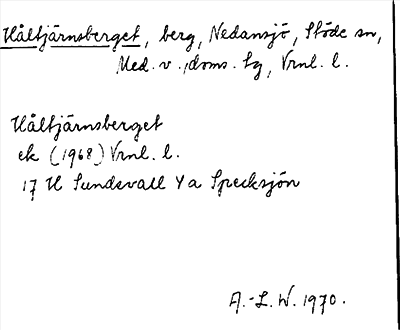 Håltjärnsberget, berg, Nedansjö, Stöde sn,
Med. v. doms. tg, Vrnl. l.
Håltjärnsberget
ek (1968) Vrnl. l.
17 H Sundsvall Y a Specksjön
A.-L. W. 1970.